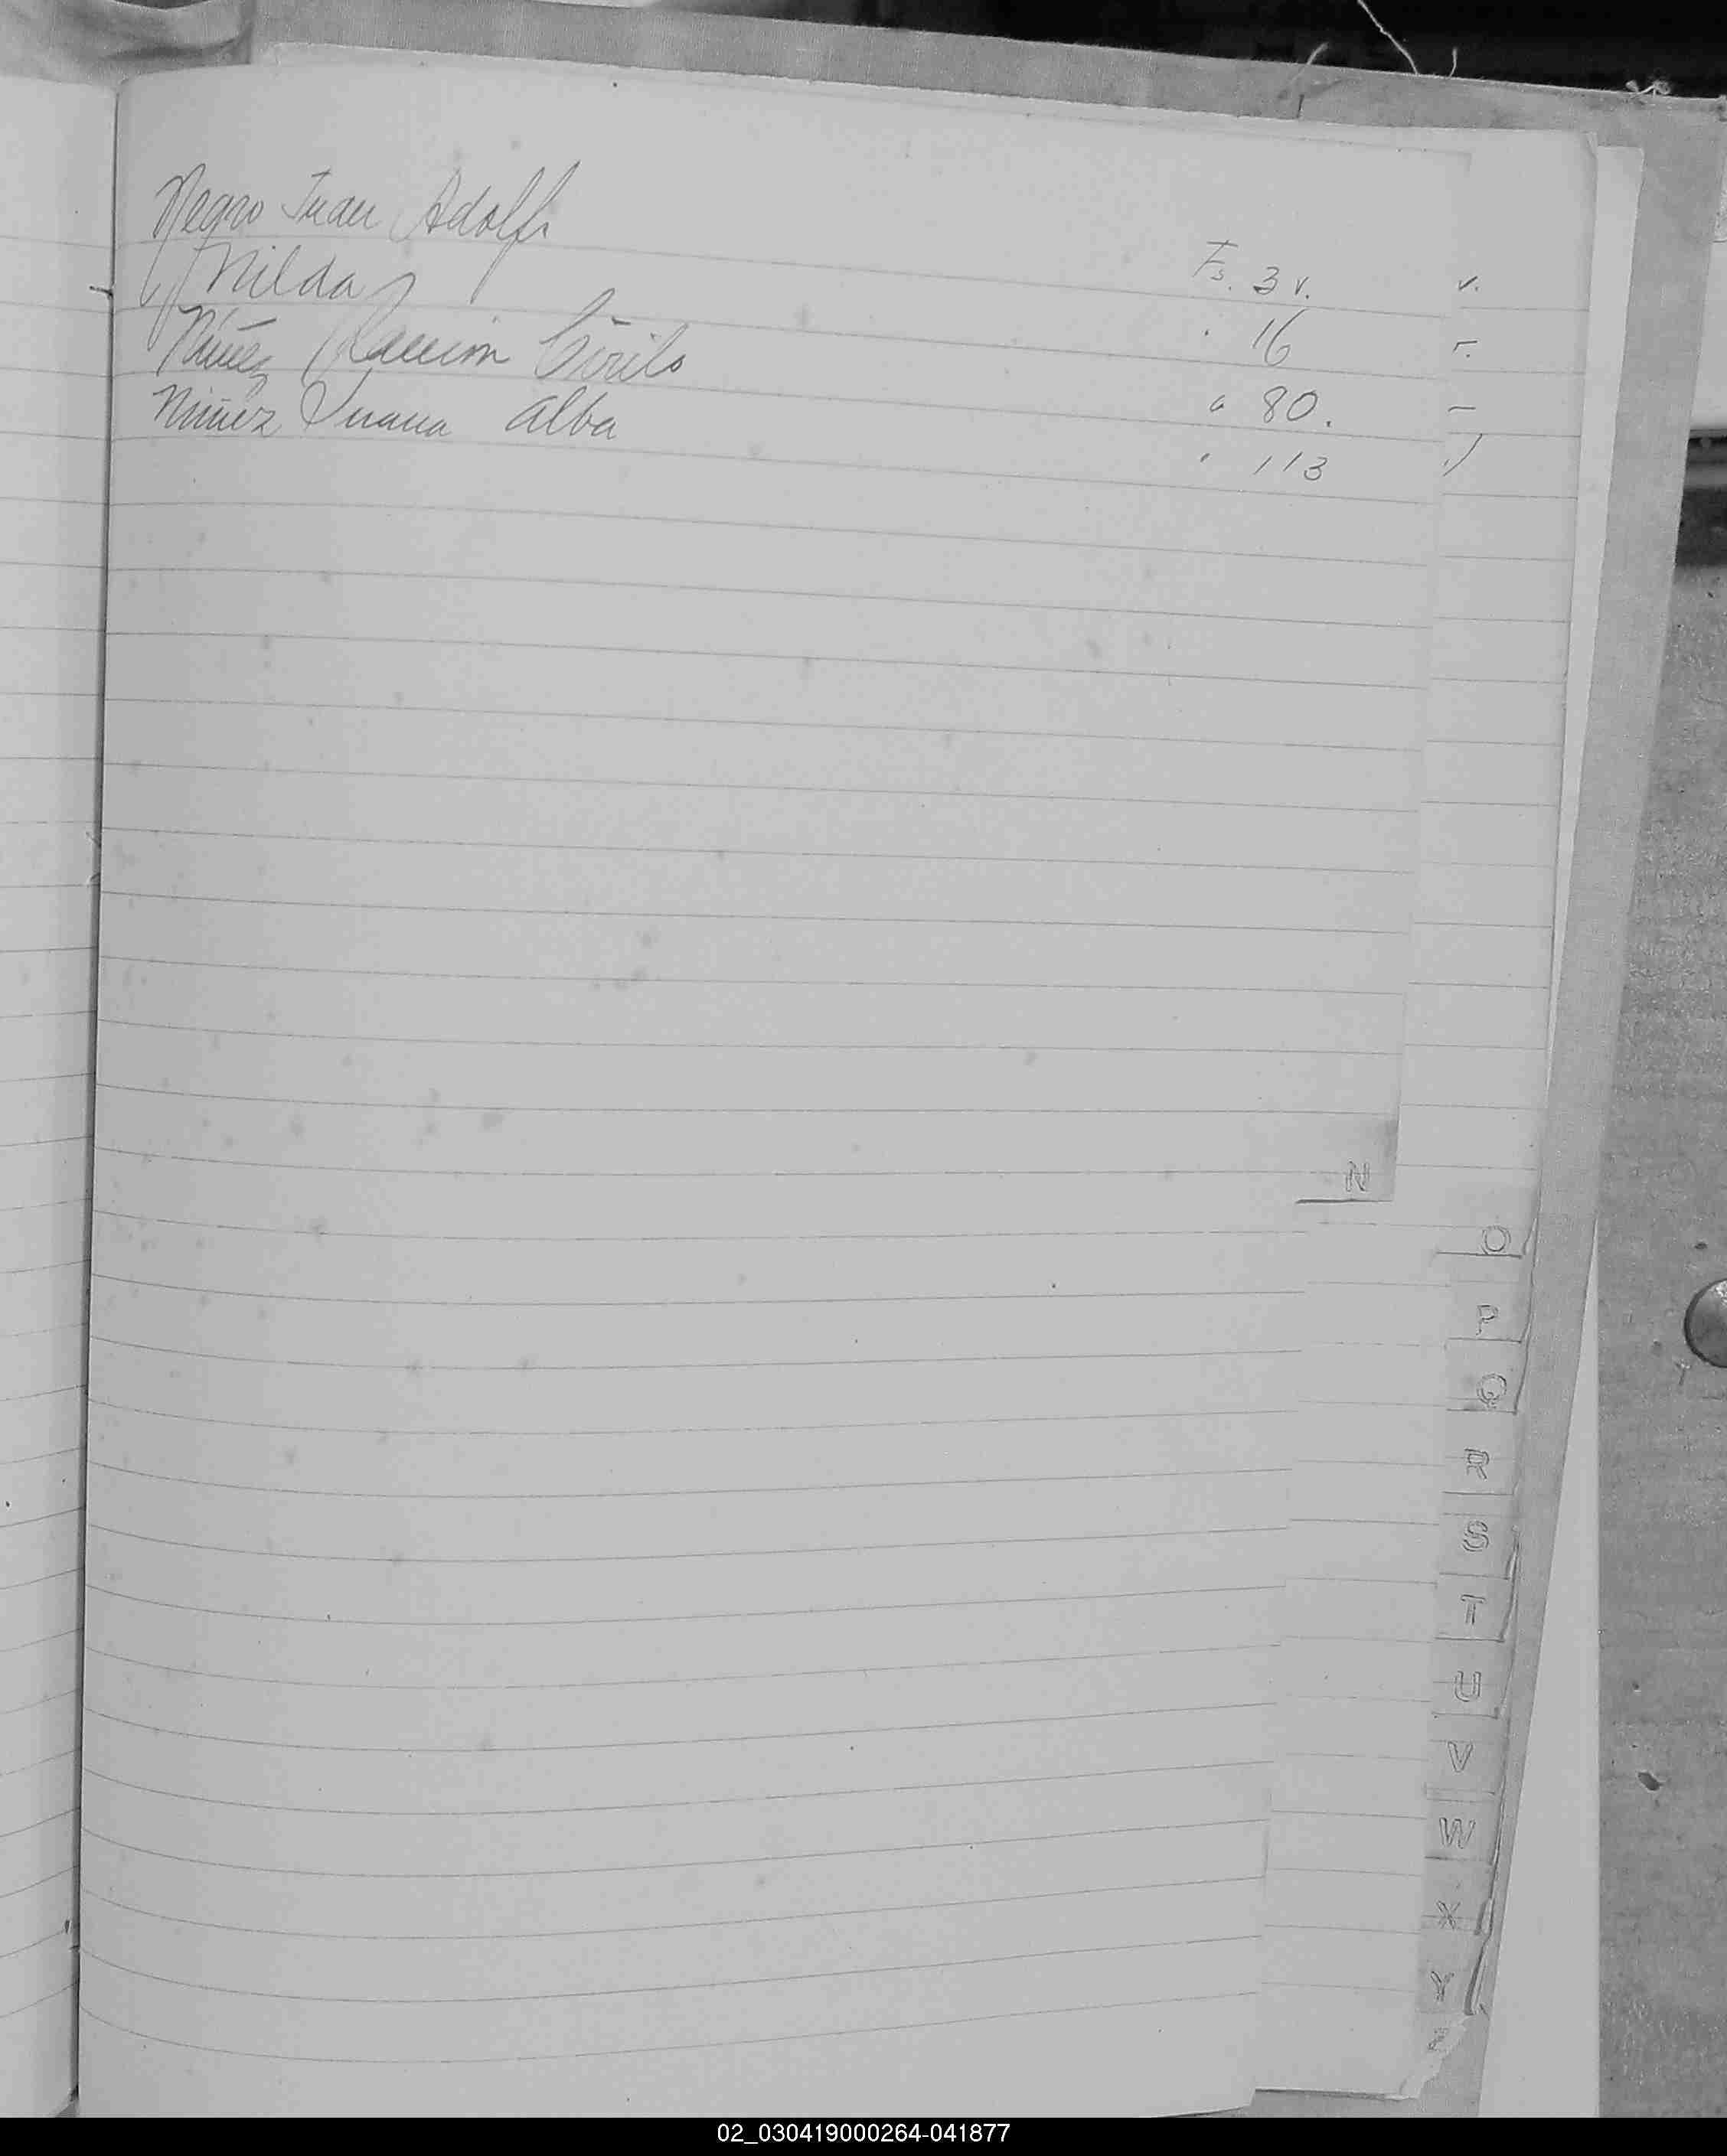 Negro Juan Adolfo Fs. 3 v.
Nilda " 16
Núñez Ramón Cirilo " 80.
Núñez Juana Alba " 113
N
O
P
Q
R
S
T
U
V
W
X
Y
Z
02_030419000264-041877